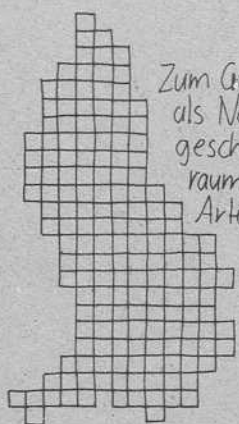 Zum G
als N
gesch
raum
Art